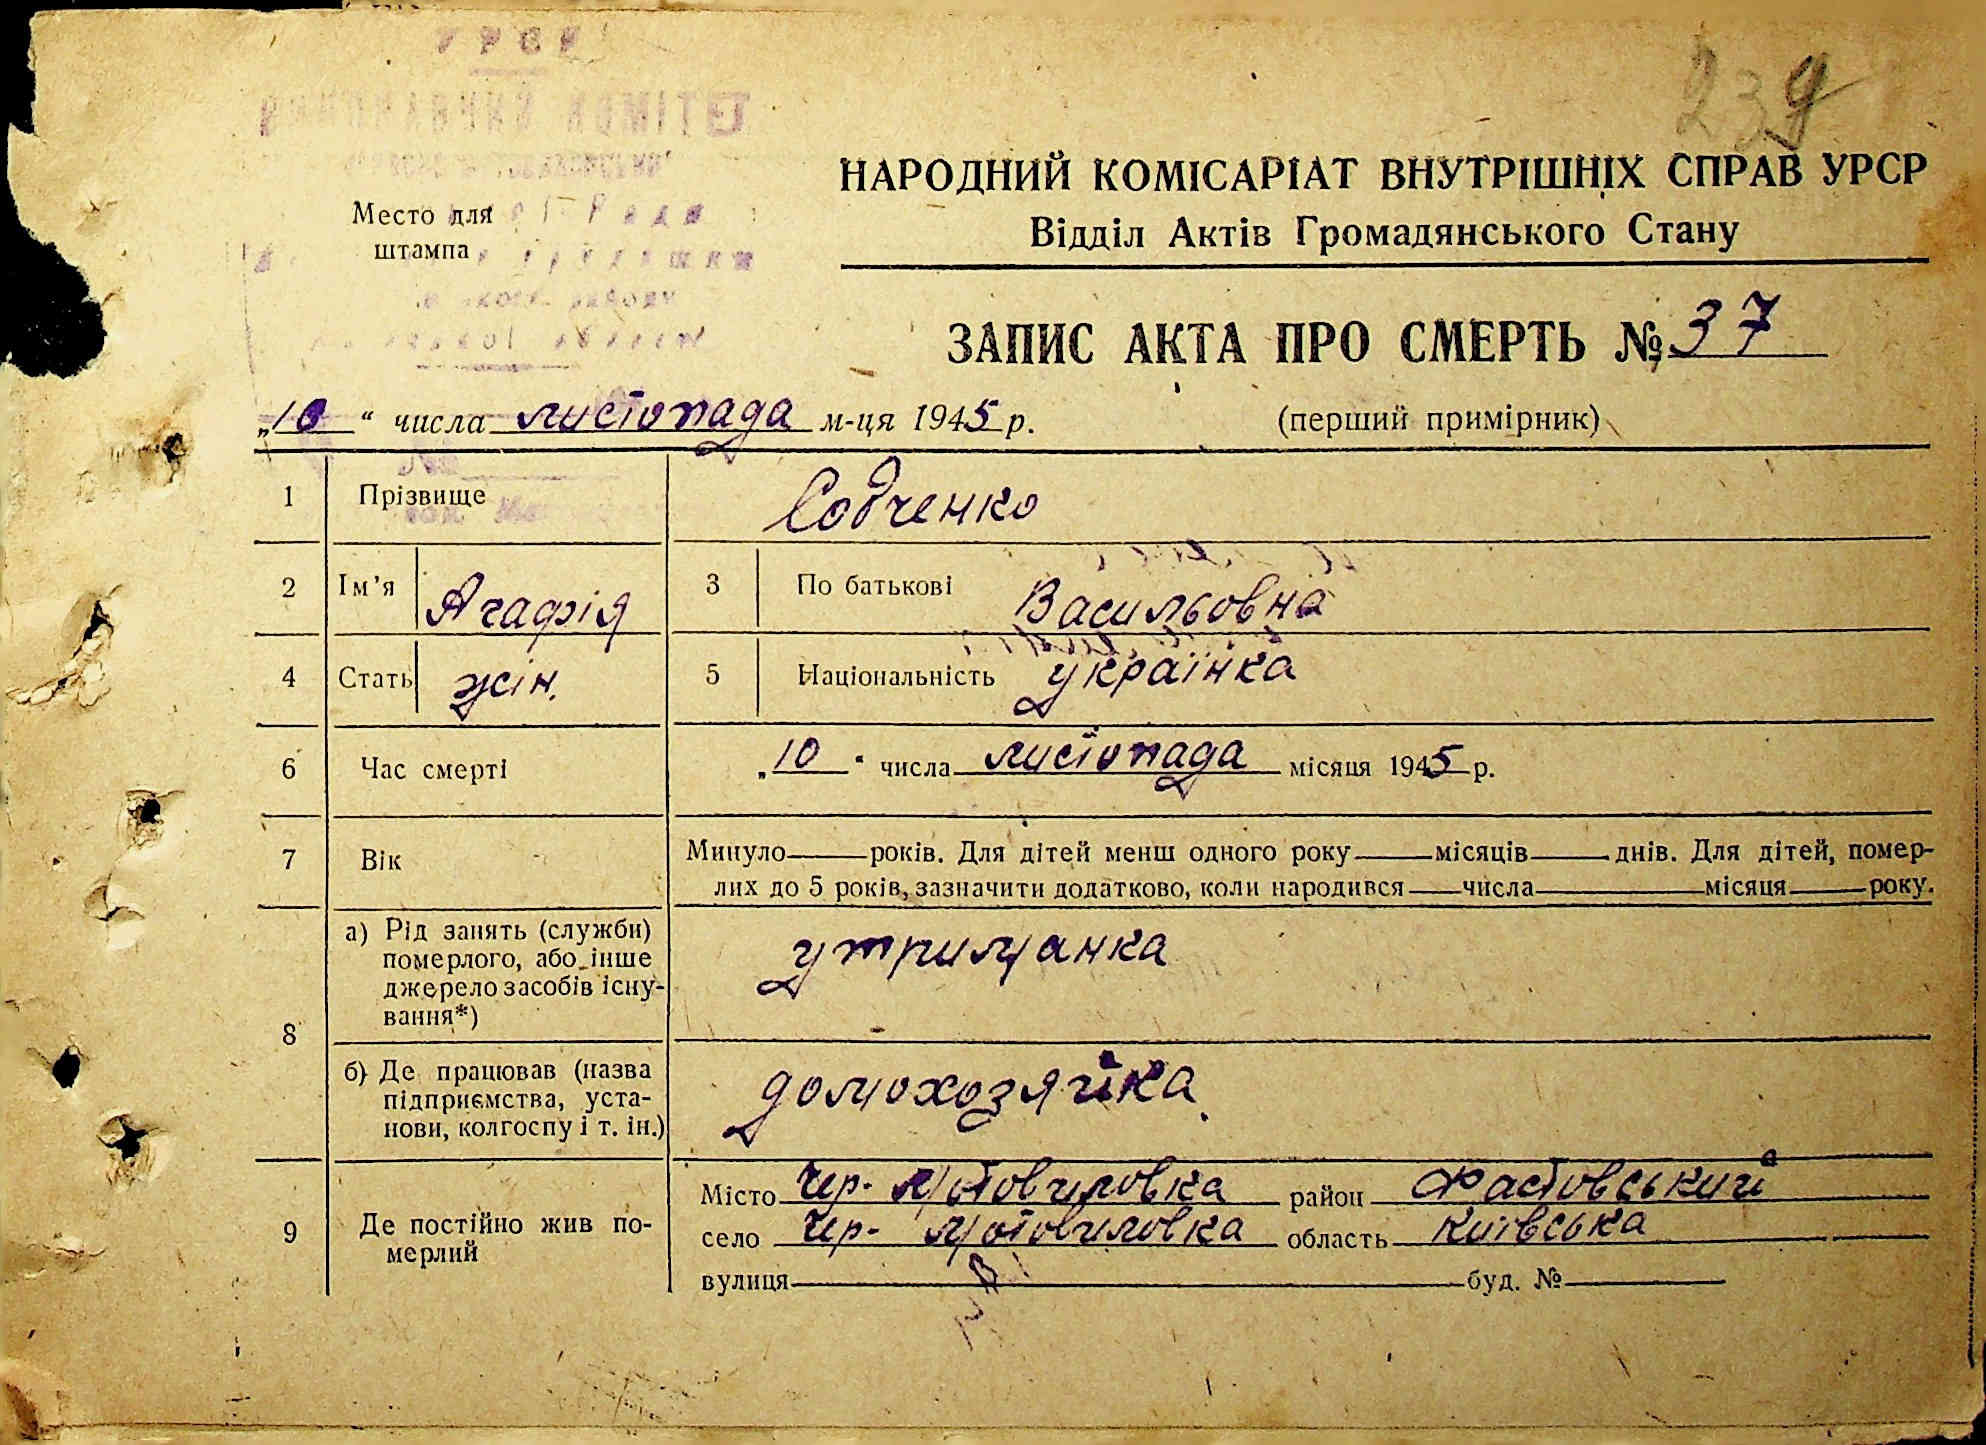 239
НАРОДНИЙ КОМІСАРІАТ ВНУТРІШНІХ СПРАВ УРСР
Відділ Актів Громадянського Стану
Место для
штампа
ЗАПИС АКТА ПРО СМЕРТЬ № 37
„10“ числа листопада м-ця 1945 р. (перший примірник)
1 Прізвище Содченко
2 Ім'я Агафія 3 По батькові Васильовна
4 Стать жін. 5 Національність українка
6 Час смерті „10“ числа листопада місяця 1945 р.
7 Вік Минуло років. Для дітей менш одного року місяців днів. Для дітей, помер-
лих до 5 років, зазначити додатково, коли народився числа місяця року.
8 а) Рід занять (служби)
померлого, або інше
джерело засобів існу-
вання*) утриманка
б) Де працював (назва
підприємства, уста-
нови, колгоспу і т. ін.) домохозяйка
9 Де постійно жив по-
мерлий
Місто Чер-Мотовиловка район Фастовський
село Чер-Мотовиловка область Київська
вулиця буд. №